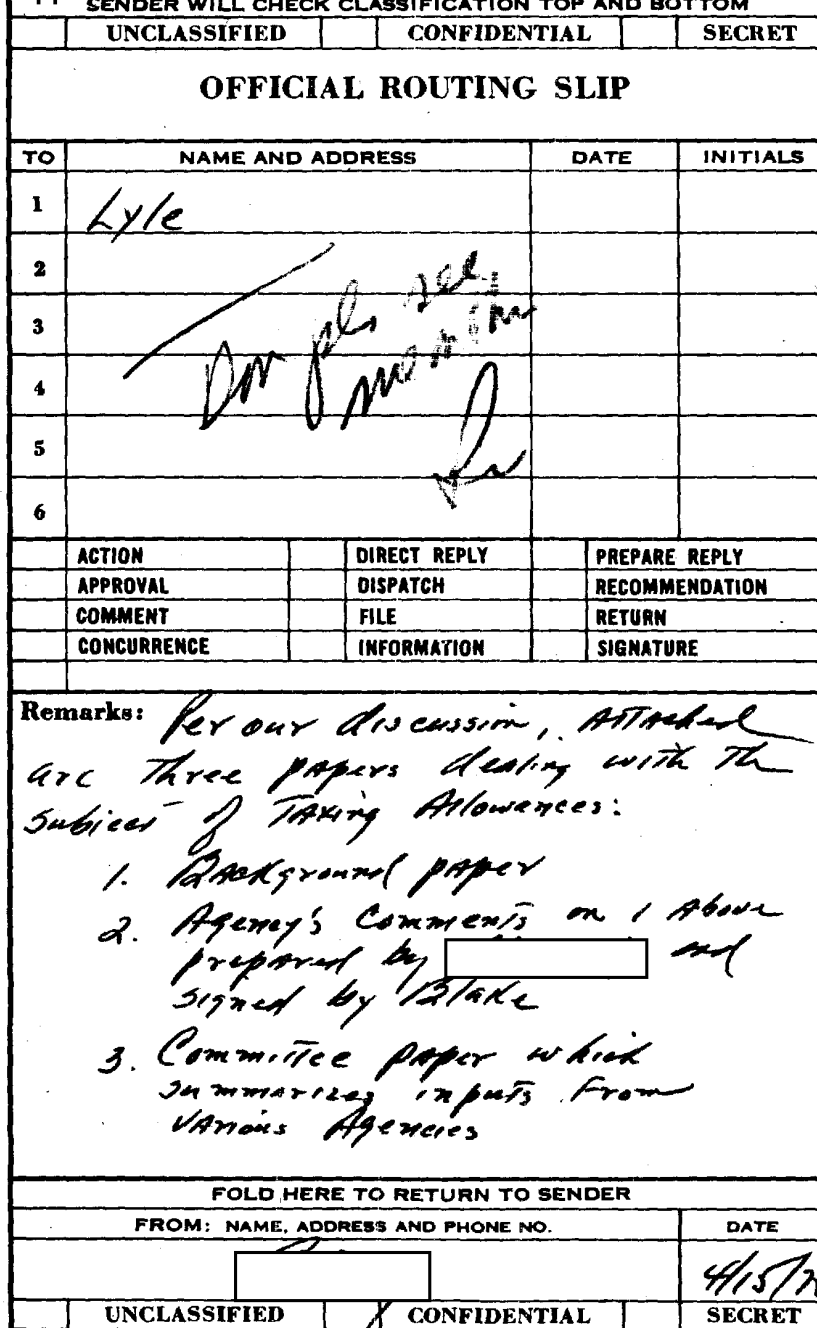 SENDER WILL CHECK CLASSIFICATION TOP AND BOTTOM
UNCLASSIFIED CONFIDENTIAL SECRET
OFFICIAL ROUTING SLIP
TO NAME AND ADDRESS DATE INITIALS
1 Lyle
2
3
4
5
6
Don pls see
me on this
ACTION DIRECT REPLY PREPARE REPLY
APPROVAL DISPATCH RECOMMENDATION
COMMENT FILE RETURN
CONCURRENCE INFORMATION SIGNATURE
Remarks: Per our discussion, Attached
are Three papers dealing with the
subject of Taxing Allowances:
1. Background paper
2. Agency's Comments on 1 Above
prepared by and
signed by Blake
3. Committee paper which
summarizes inputs From
various Agencies
FOLD HERE TO RETURN TO SENDER
FROM: NAME, ADDRESS AND PHONE NO. DATE
4/15/7
UNCLASSIFIED CONFIDENTIAL SECRET